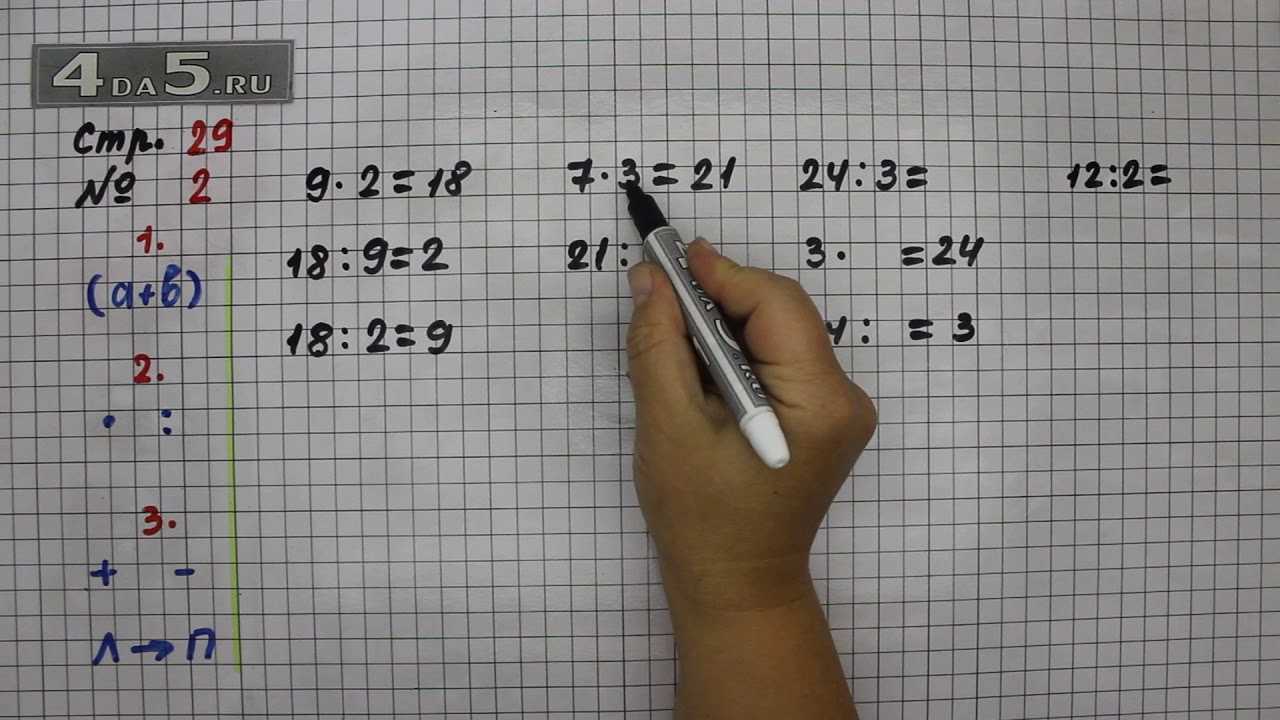 4DA5.RU
Стр. 29
№ 2
1.
(а+в)
2.
· :
3.
+ -
Л → П
9 · 2 = 18
18 : 9 = 2
18 : 2 = 9
7 · 3 = 21
21 :
24 : 3 =
3 · = 24
4 : = 3
12 : 2 =